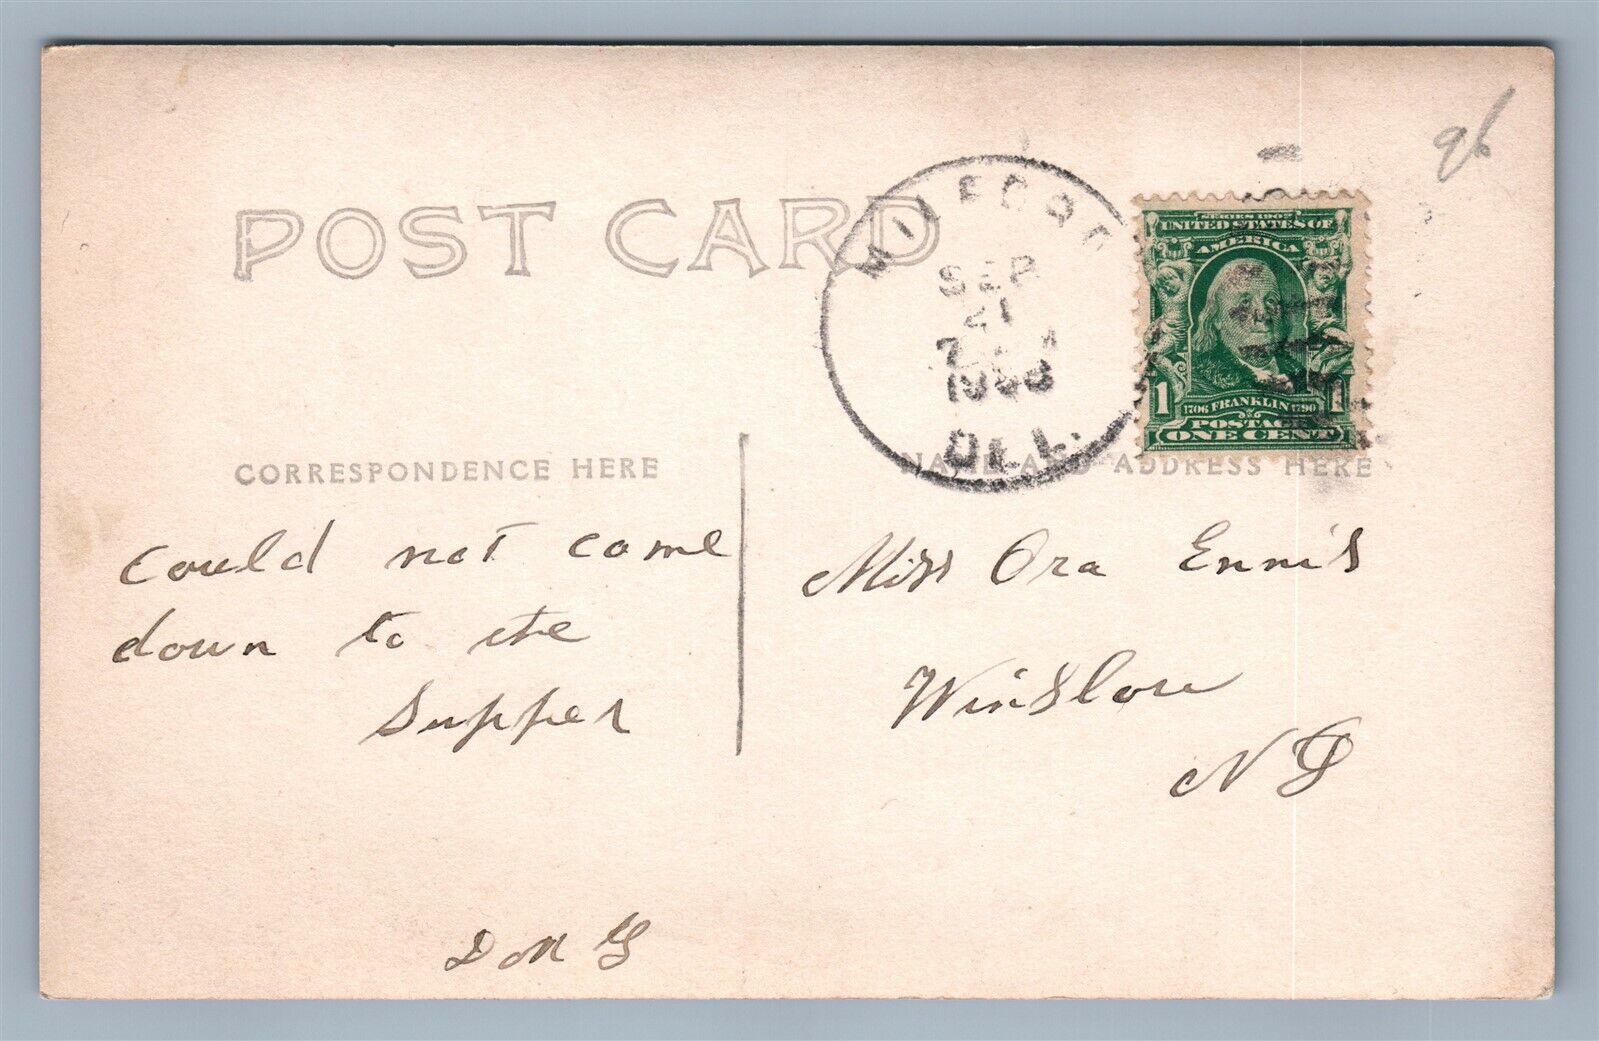 96
POST CARD
MILFORD
SEP
21
1908
DEL.
SERIES 1902
UNITED STATES OF
AMERICA
1 1
1706 FRANKLIN 1790
POSTAGE
ONE CENT
CORRESPONDENCE HERE
NAME AND ADDRESS HERE
Could not come
down to the
Supper
Miss Ora Ennis
Winslow
NJ